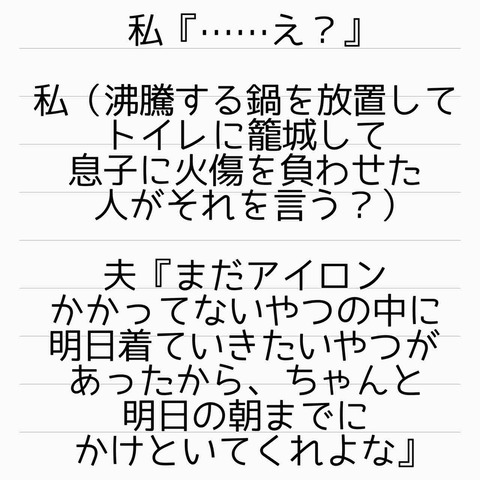 私『……え？』
私（沸騰する鍋を放置して
トイレに籠城して
息子に火傷を負わせた
人がそれを言う？）
夫『まだアイロン
かかってないやつの中に
明日着ていきたいやつが
あったから、ちゃんと
明日の朝までに
かけといてくれよな』